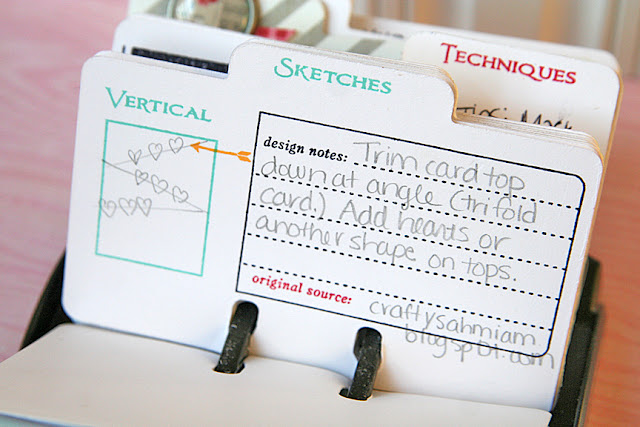 TECHNIQUES
SKETCHES
VERTICAL
design notes: Trim card top
down at angle (trifold
card.) Add hearts or
another shape on tops.
original source: craftysahmiam
blogspot.com